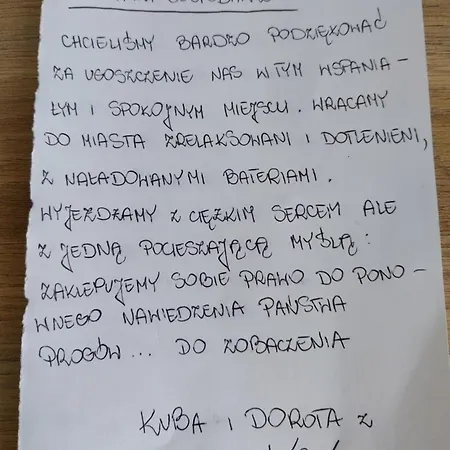 CHCIELIŚMY BARDZO PODZIĘKOWAĆ
ZA UGOSZCZENIE NAS W TYM WSPANIA-
ŁYM I SPOKOJNYM MIEJSCU. WRACAMY
DO MIASTA ZRELAKSOWANI I DOTLENIENI,
Z NAŁADOWANYMI BATERIAMI.
WYJEŻDŻAMY Z CIĘŻKIM SERCEM ALE
Z JEDNĄ POCIESZAJĄCĄ MYŚLĄ:
ZAKLEPUJEMY SOBIE PRAWO DO PONO-
WNEGO NAWIEDZENIA PAŃSTWA
PROGÓW... DO ZOBACZENIA
KUBA I DOROTA Z